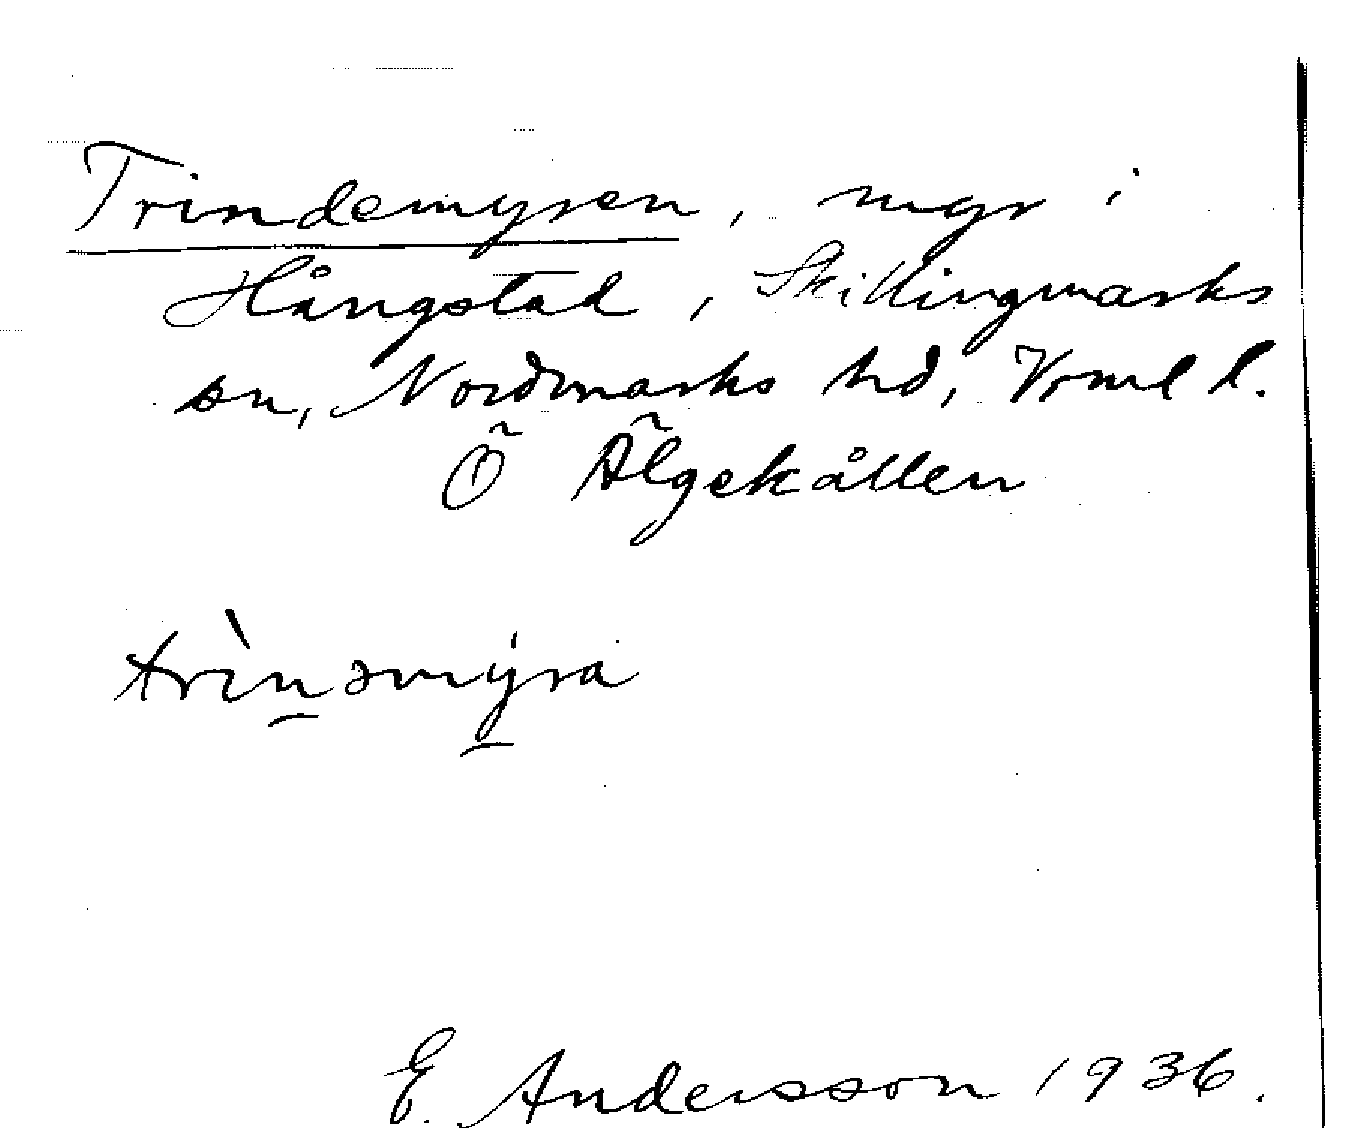 Trindemyren, myr i
Hångstad, Skillingmarks
sn, Nordmarks hd, Vrml l.
Ö Älgekållen
trìnəmýra
E. Andersson 1936.